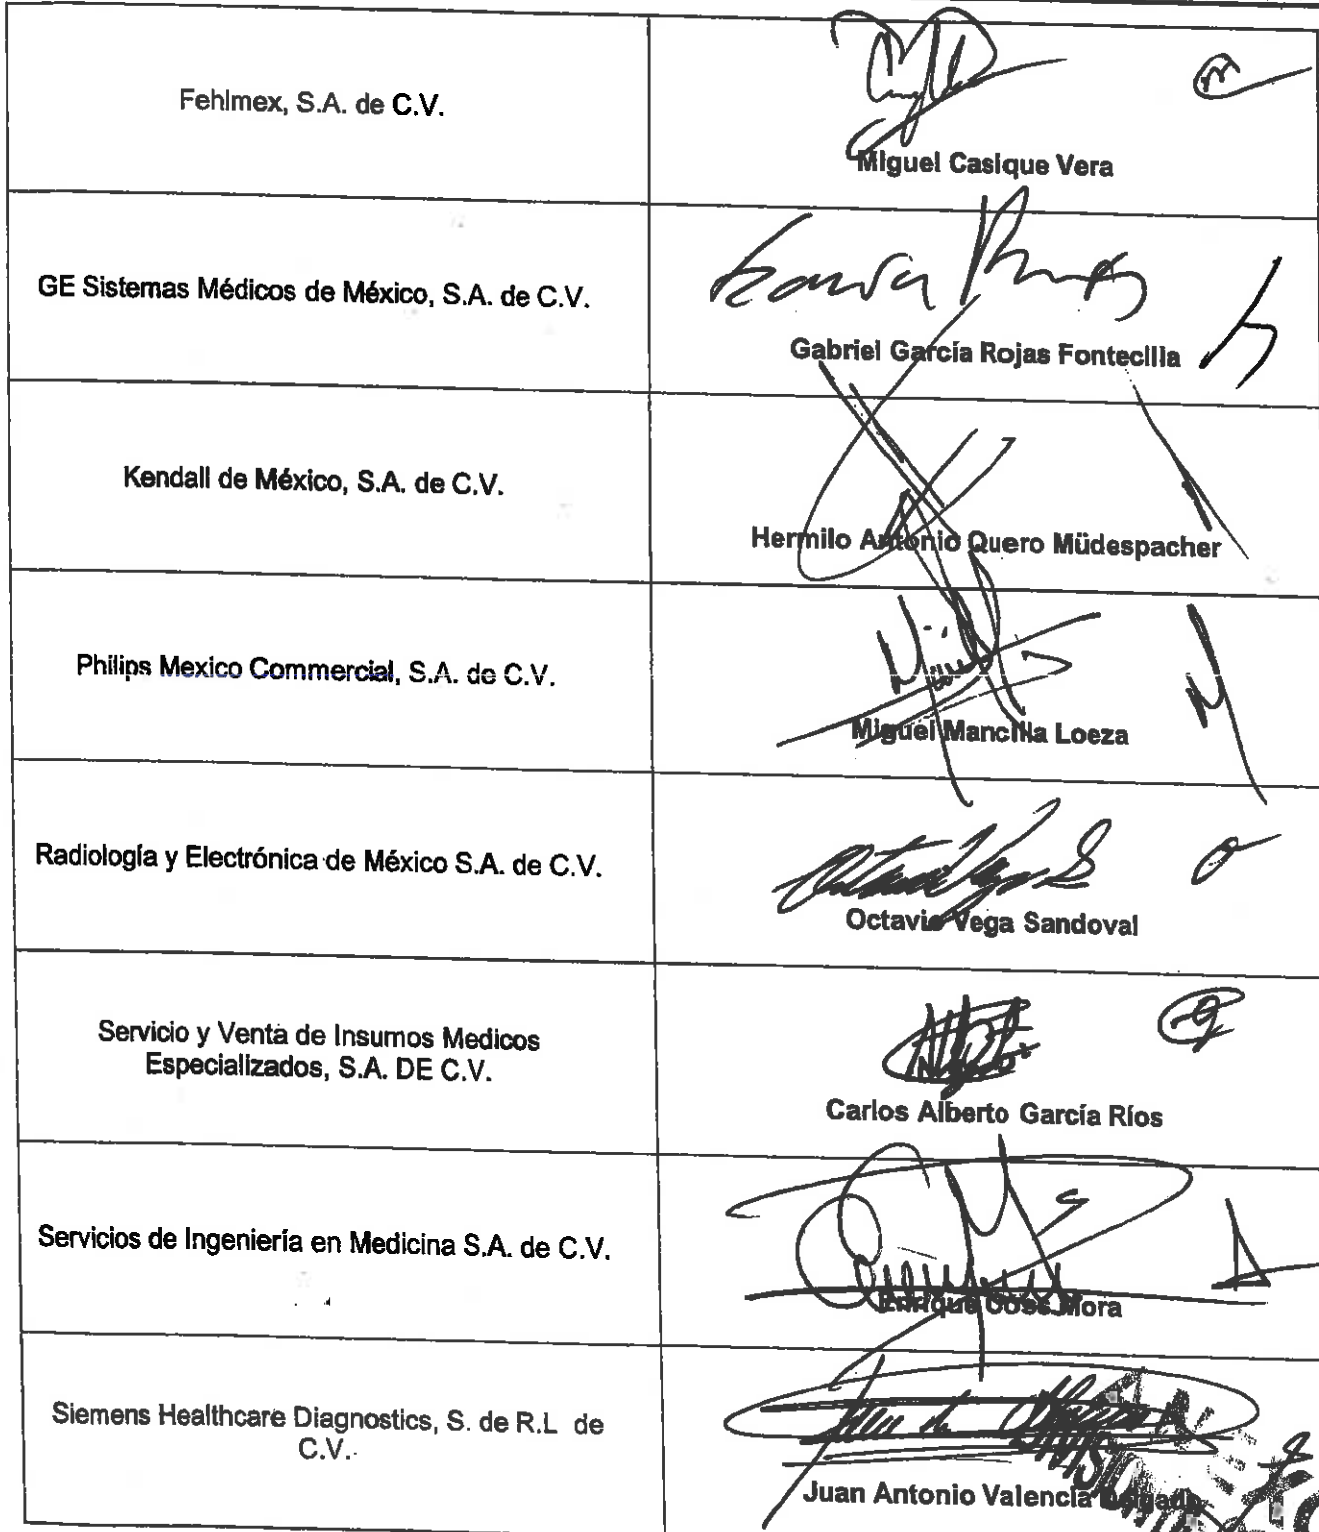 Fehlmex, S.A. de C.V.
Miguel Casique Vera
GE Sistemas Médicos de México, S.A. de C.V.
Gabriel García Rojas Fontecilla
Kendall de México, S.A. de C.V.
Hermilo Antonio Quero Müdespacher
Philips Mexico Commercial, S.A. de C.V.
Miguel Mancilla Loeza
Radiología y Electrónica de México S.A. de C.V.
Octavio Vega Sandoval
Servicio y Venta de Insumos Medicos
Especializados, S.A. DE C.V.
Carlos Alberto García Ríos
Servicios de Ingeniería en Medicina S.A. de C.V.
Enrique Mora
Siemens Healthcare Diagnostics, S. de R.L de
C.V.
Juan Antonio Valencia